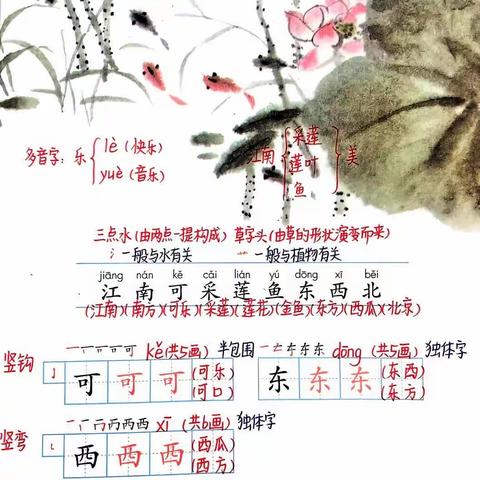 多音字：乐 { lè (快乐)
yuè (音乐)
江南 { 采莲 } 美
莲叶
鱼
三点水(由两点一提构成) 草字头(由草的形状演变而来)
氵一般与水有关 艹一般与植物有关
jiāng nán kě cǎi lián yú dōng xī běi
江 南 可 采 莲 鱼 东 西 北
(江南)(南方)(可乐)(采莲)(莲花)(金鱼)(东方)(西瓜)(北京)
kě (共5画) 半包围
竖钩 亅 可 可 可 (可乐)
(可口)
dōng (共5画) 独体字
东 东 东 (东西)
(东方)
xī (共6画) 独体字
竖弯 西 西 西 (西瓜)
(西方)